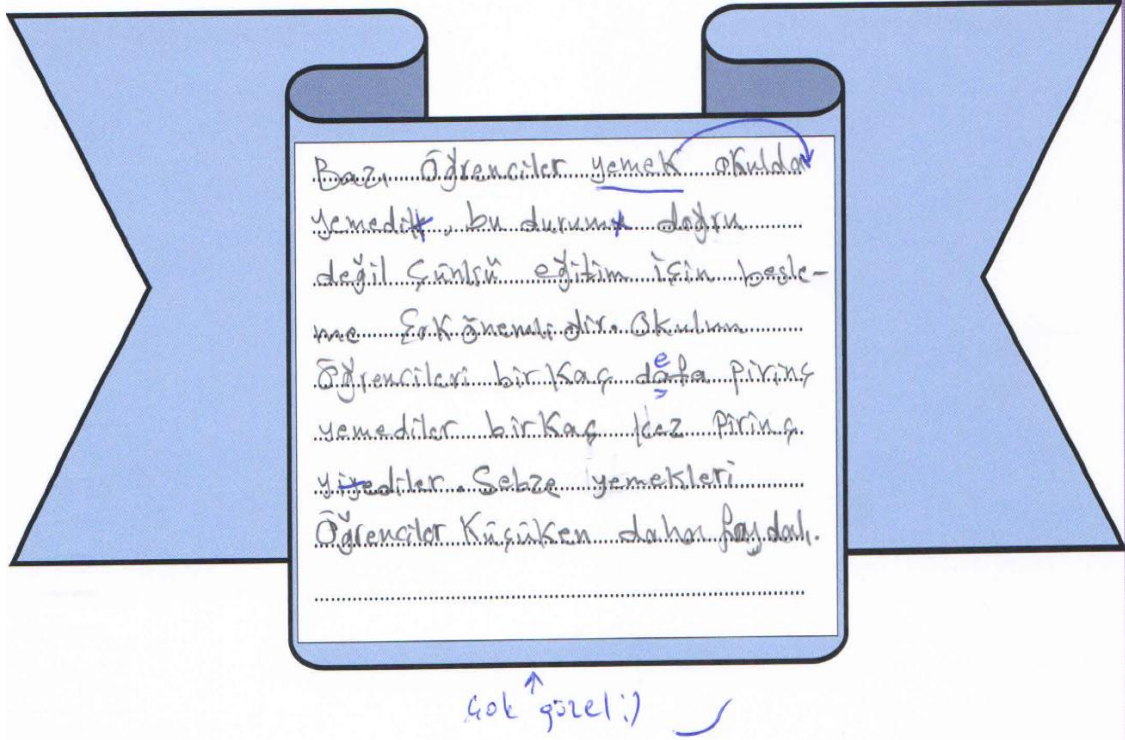 Bazı Öğrenciler yemek okulda
yemedik, bu durumu doğru
değil çünkü eğitim için besle-
me çok önemlidir. Okulun
e
Öğrencileri birkaç dafa pirinç
yemediler birkaç kez pirinç
yiyediler. Sebze yemekleri
Öğrenciler Küçüken daha faydalı.
çok güzel :)